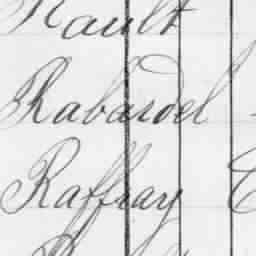 Rault
Rabardel
Raffray